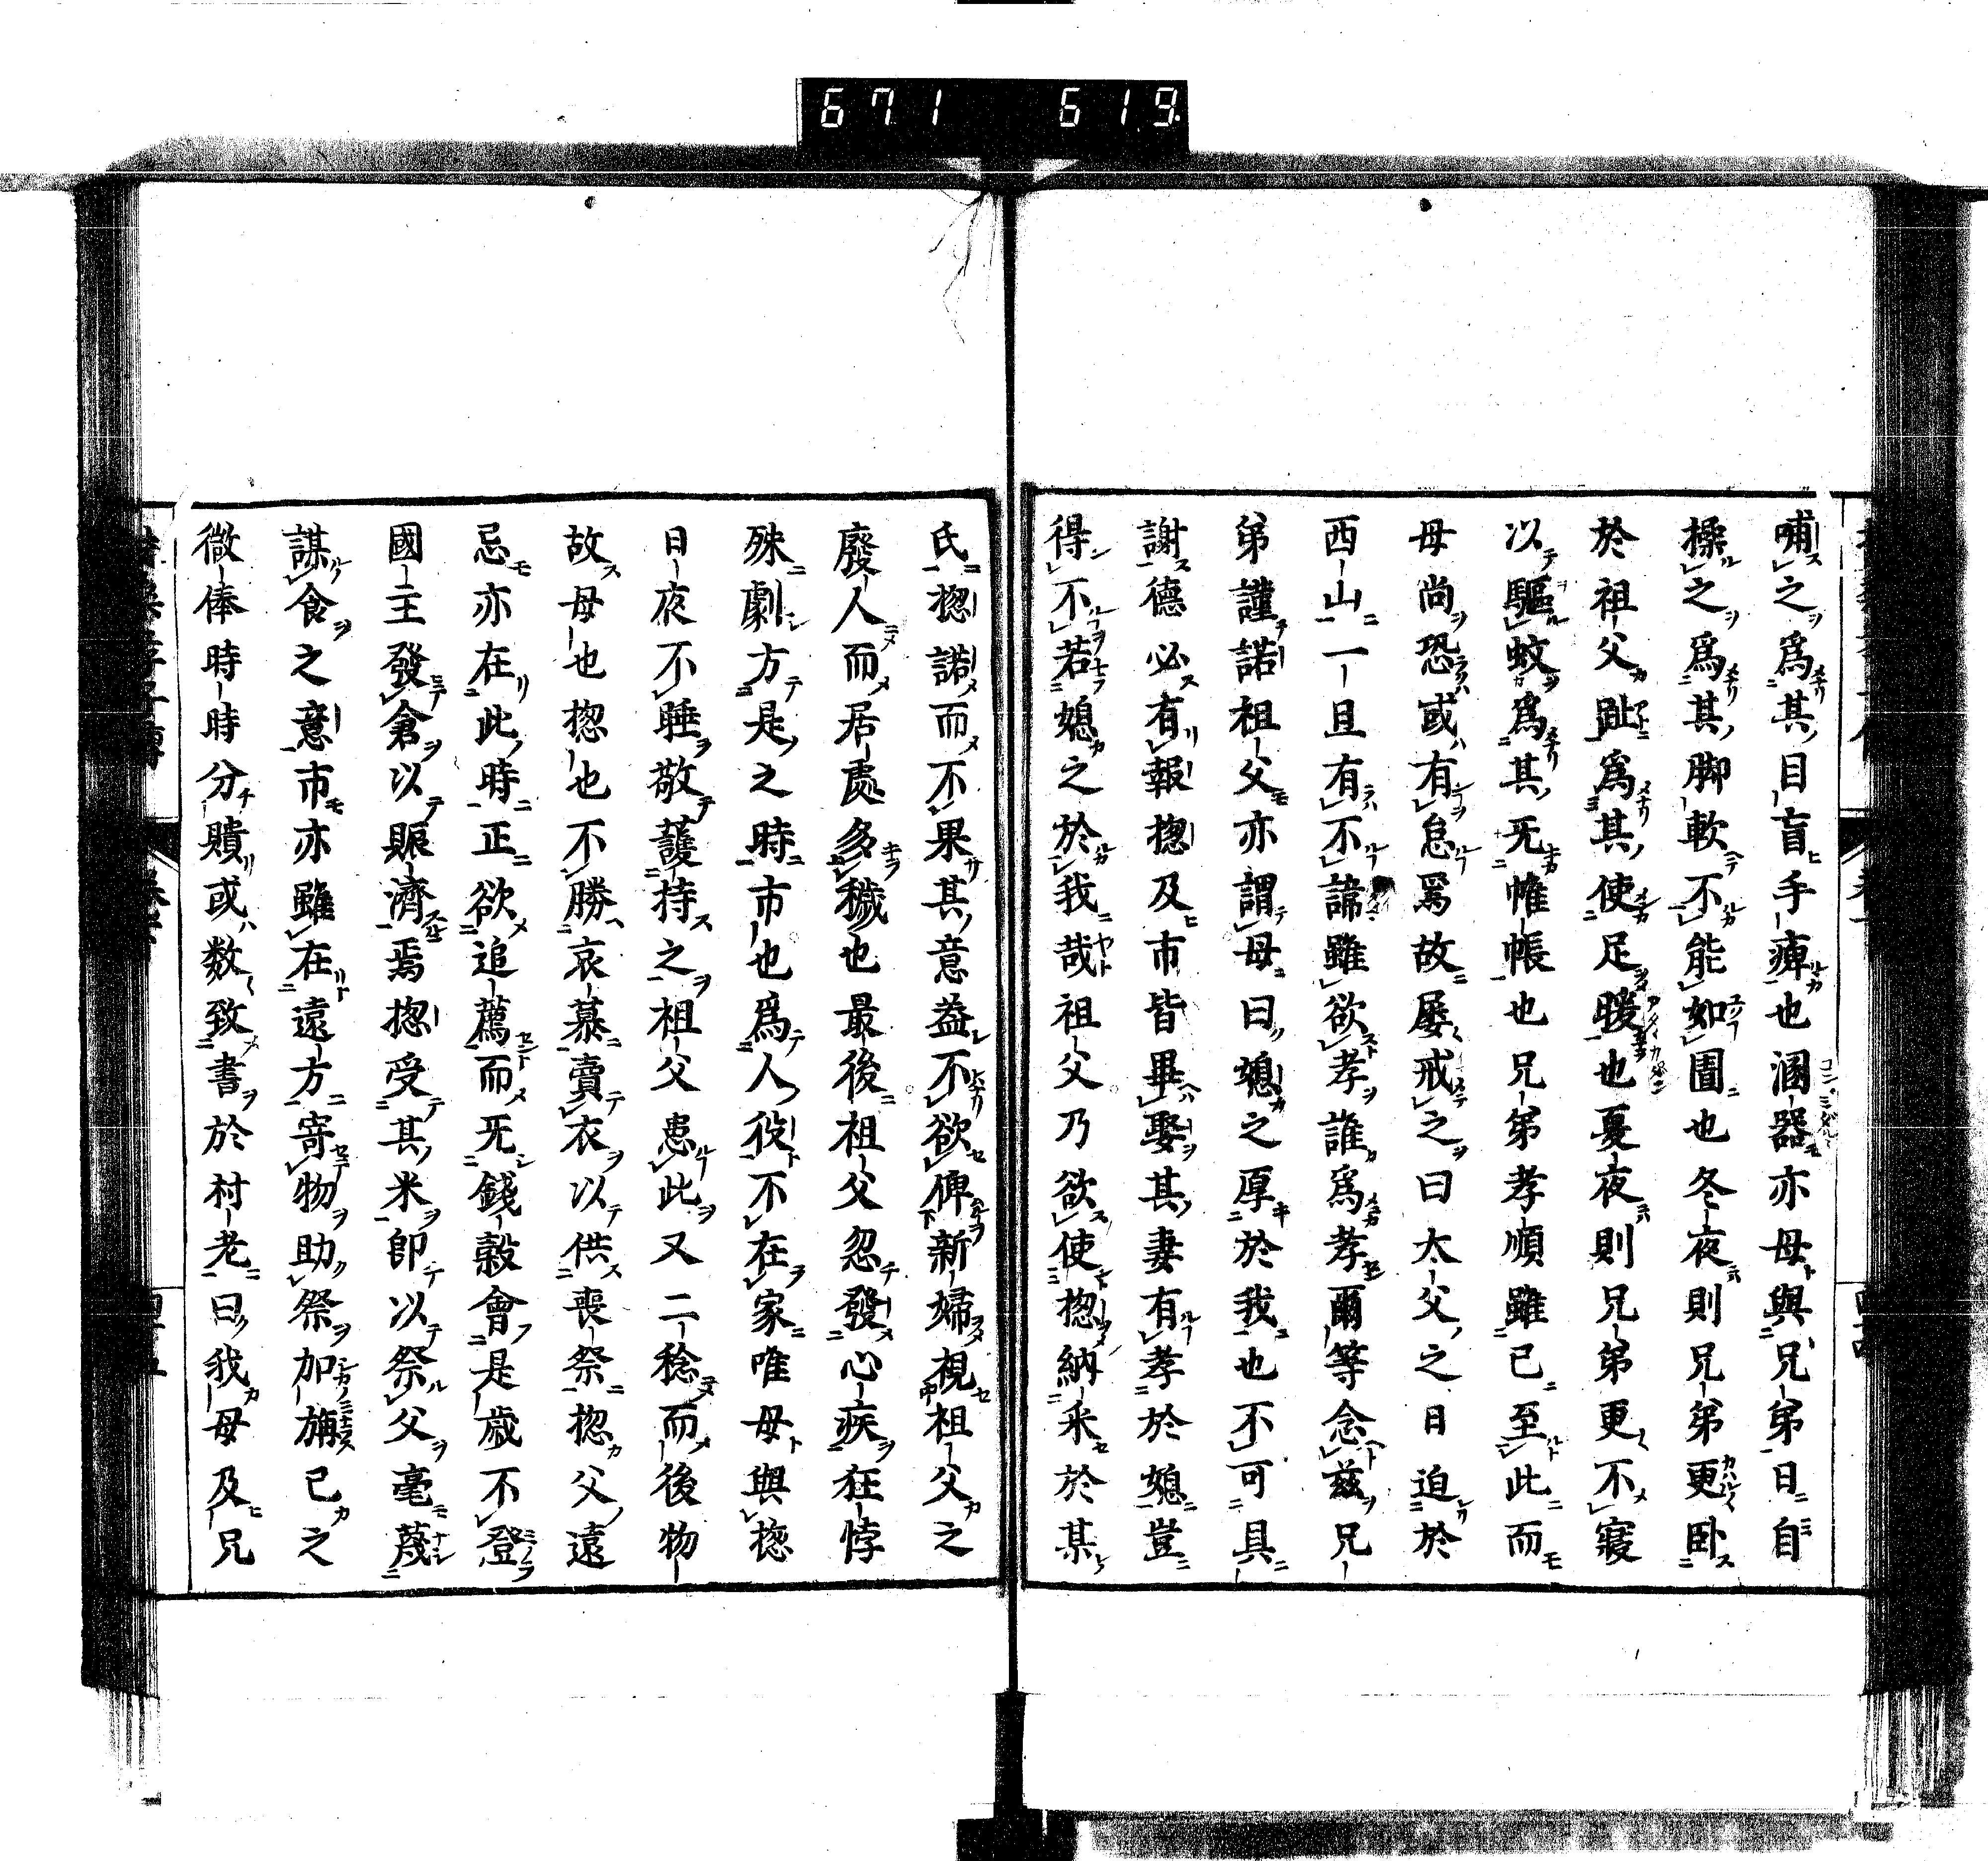 671 619
哺之為其目盲手痺也溷器亦母與兄弟日自
操之為其脚軟不能如圊也冬夜則兄弟更臥
於祖父趾為其使足暖也憂夜則兄弟更不寢
以驅蚊為其旡帷帳也兄弟孝順雖已至此而
母尚恐或有怠焉故屡戒之曰太父之日迫於
西山一旦有不諱雖欲孝誰為孝爾等念茲兄
弟謹諾祖父亦謂母曰媳之厚於我也不可具
謝德必有報揔及市皆畢娶其妻有孝於媳豈
得不若媳之於我哉祖父乃欲使揔納采於某
氏揔諾而不果其意益不欲俾新婦視祖父之
廢人而居處多穢也最後祖父忽發心疾狂悖
殊劇方是之時市也為人役不在家唯母與揔
日夜不睡敬護持之祖父患此又二稔而後物
故母也揔也不勝哀慕賣衣以供喪祭揔父遠
忌亦在此時正欲追薦而旡錢穀會是歳不登
國主發倉以賑濟焉揔受其米即以祭父毫蔑
謀食之意市亦雖在遠方寄物助祭加旃已之
微俸時時分贖或数致書於村老曰我母及兄